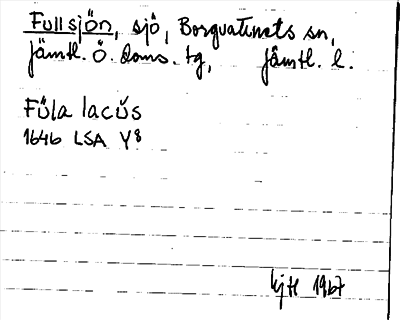 Fullsjön, sjö, Borgvattnets sn,
Jämtl. ö. doms. tg, Jämtl. l.
Fŭla lacŭs
1646 LSA Y8
1967